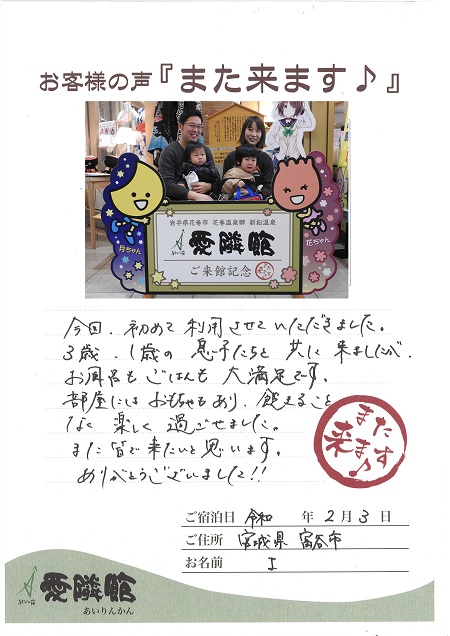 お客様の声『また来ます♪』
岩手県花巻市 花巻温泉郷 新鉛温泉
愛隣館
ご来館記念
月ちゃん
花ちゃん
今回、初めて利用させていただきました。
3歳、1歳の息子たちと共に来ましたが、
お風呂もごはんも大満足です。
部屋にはおもちゃもあり、飽きること
なく楽しく過ごせました。
また皆で来たいと思います。
ありがとうございました!!
また
来ます♪
ご宿泊日 令和 年 2月 3日
ご住所 宮城県 富谷市
お名前 I
愛隣館
あいりんかん